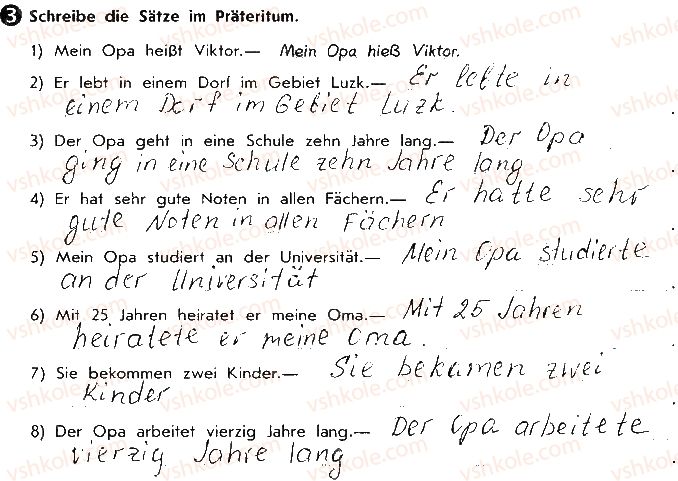 3 Schreibe die Sätze im Präteritum.
1) Mein Opa heißt Viktor.— Mein Opa hieß Viktor.
2) Er lebt in einem Dorf im Gebiet Luzk.— Er lebte in
einem Dorf im Gebiet Luzk.
3) Der Opa geht in eine Schule zehn Jahre lang.— Der Opa
ging in eine Schule zehn Jahre lang
4) Er hat sehr gute Noten in allen Fächern.— Er hatte sehr
gute Noten in allen Fächern
5) Mein Opa studiert an der Universität.— Mein Opa studierte
an der Universität
6) Mit 25 Jahren heiratet er meine Oma.— Mit 25 Jahren
heiratete er meine Oma.
7) Sie bekommen zwei Kinder.— Sie bekamen zwei
Kinder
8) Der Opa arbeitet vierzig Jahre lang.— Der Opa arbeitete
vierzig Jahre lang